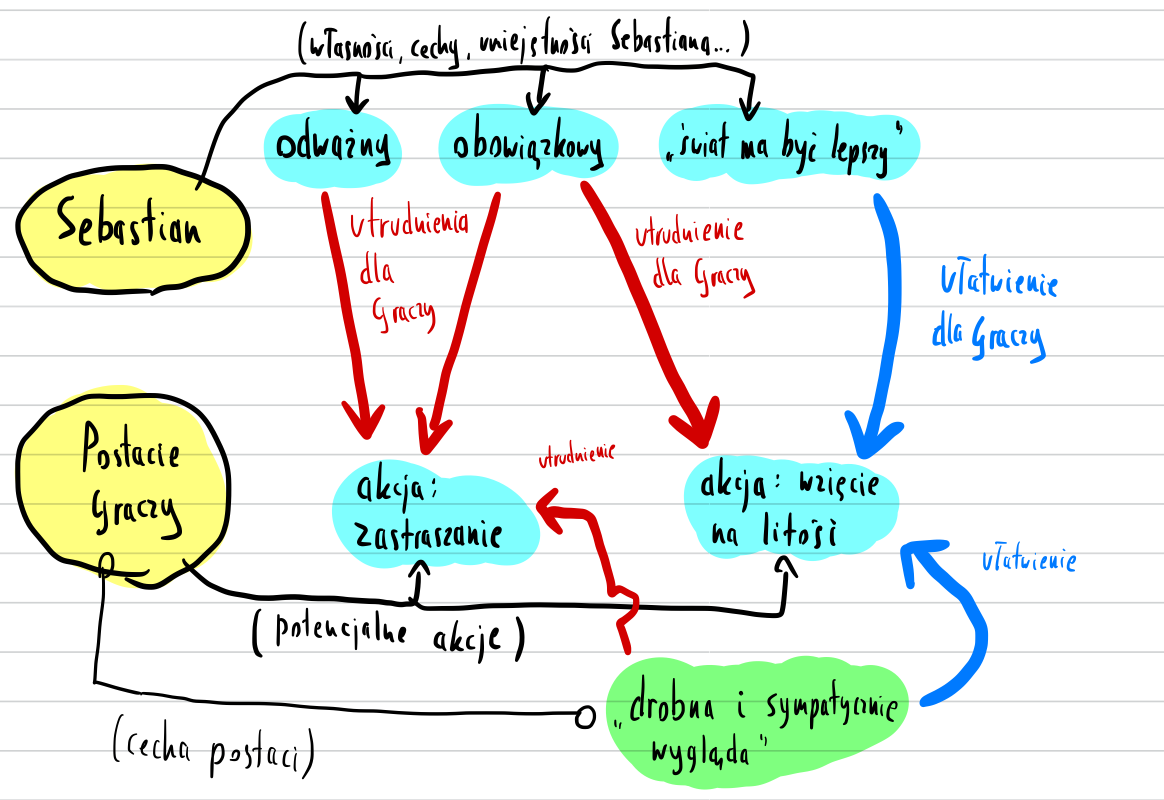 (własności, cechy, umiejętności Sebastiana...)
odważny
obowiązkowy
„świat ma być lepszy”
Sebastian
utrudnienia
dla
Graczy
utrudnienie
dla Graczy
ułatwienie
dla Graczy
Postacie
Graczy
akcja:
zastraszanie
utrudnienie
akcja: wzięcie
na litość
ułatwienie
(potencjalne akcje)
„drobna i sympatycznie
wygląda”
(cecha postaci)